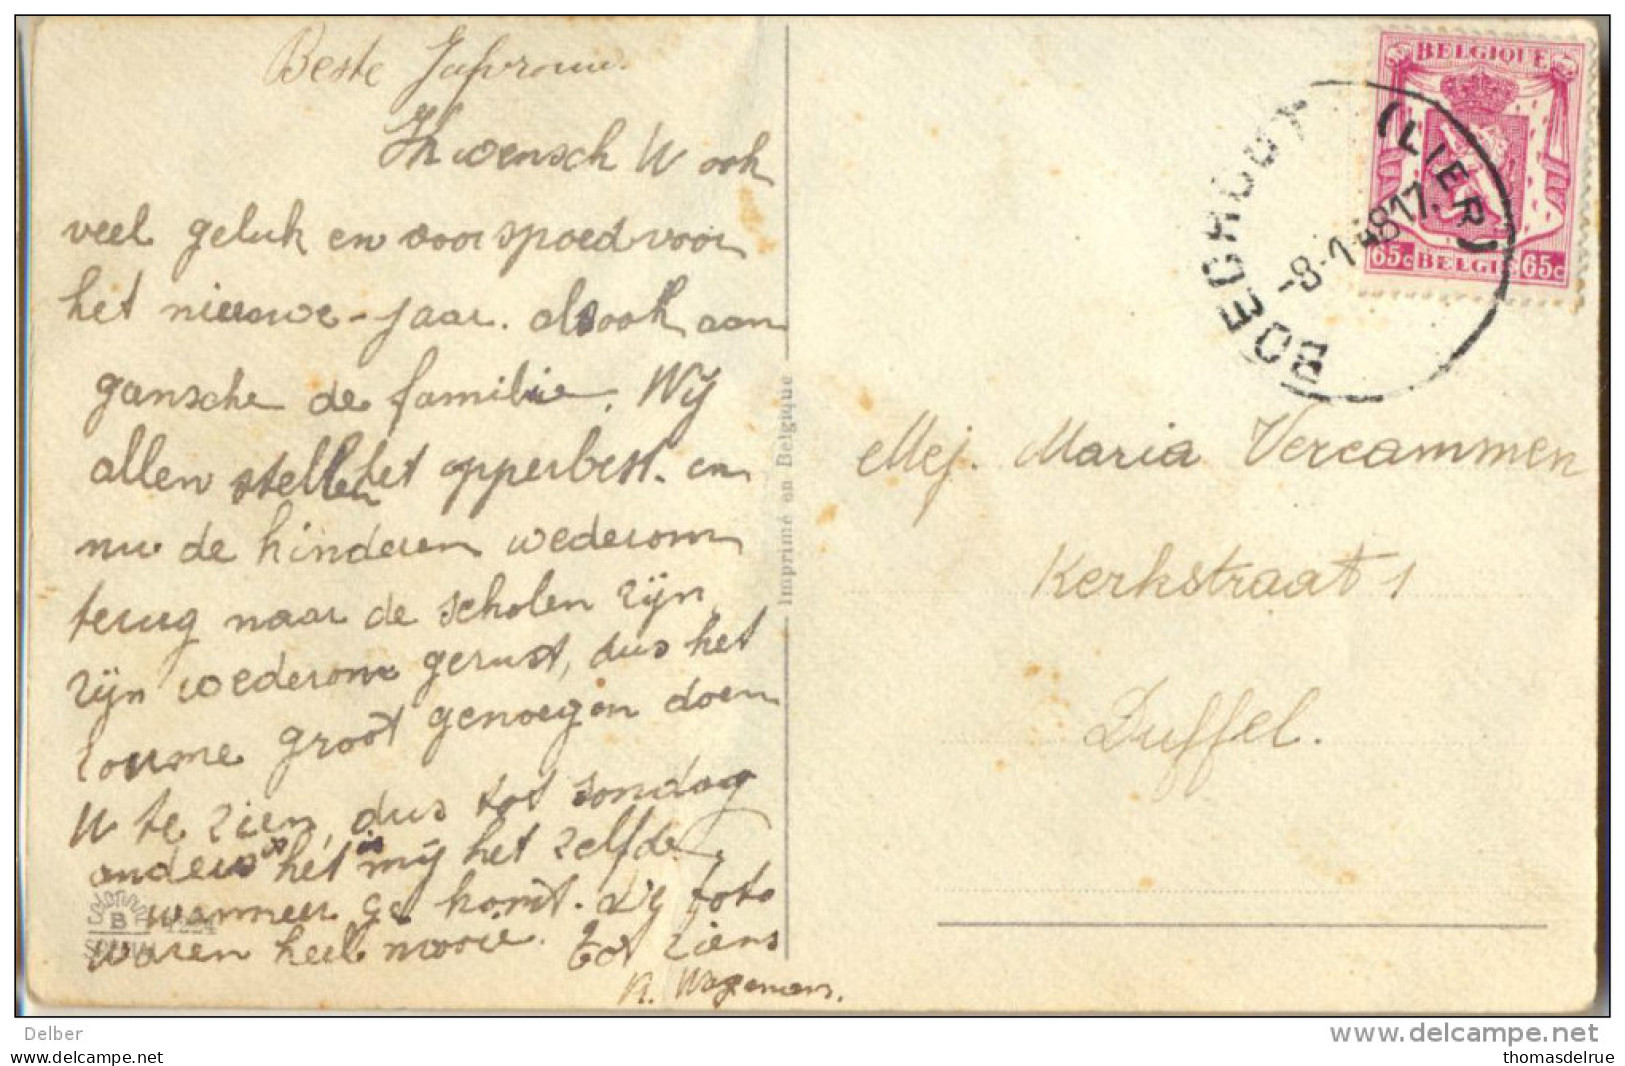 Beste Jufvrouw.
Ik wensch U ook
veel geluk en voorspoed voor
het nieuwe-jaar. alsook aan
gansche de familie. Wij
allen stellen het opperbest. en
nu de kinderen wederom
terug naar de scholen zijn
zijn wederom gerust, dus het
zou me groot genoegen doen
U te zien, dus tot zondag
anders is het is mij het zelfde
wanneer ge komt. Die foto
waren heel mooie. Tot ziens
Wagemans.
Imprimé en Belgique
COLORPRINT
B
SPECIAL 4224
BELGIQUE
65c BELGIE 65c
BOECHOUT (LIER)
-8-1-4817.
Mej. Maria Vercammen
Kerkstraat 1
Duffel.
Delber
delcampe.net
posted for sale on
thomasdelrue